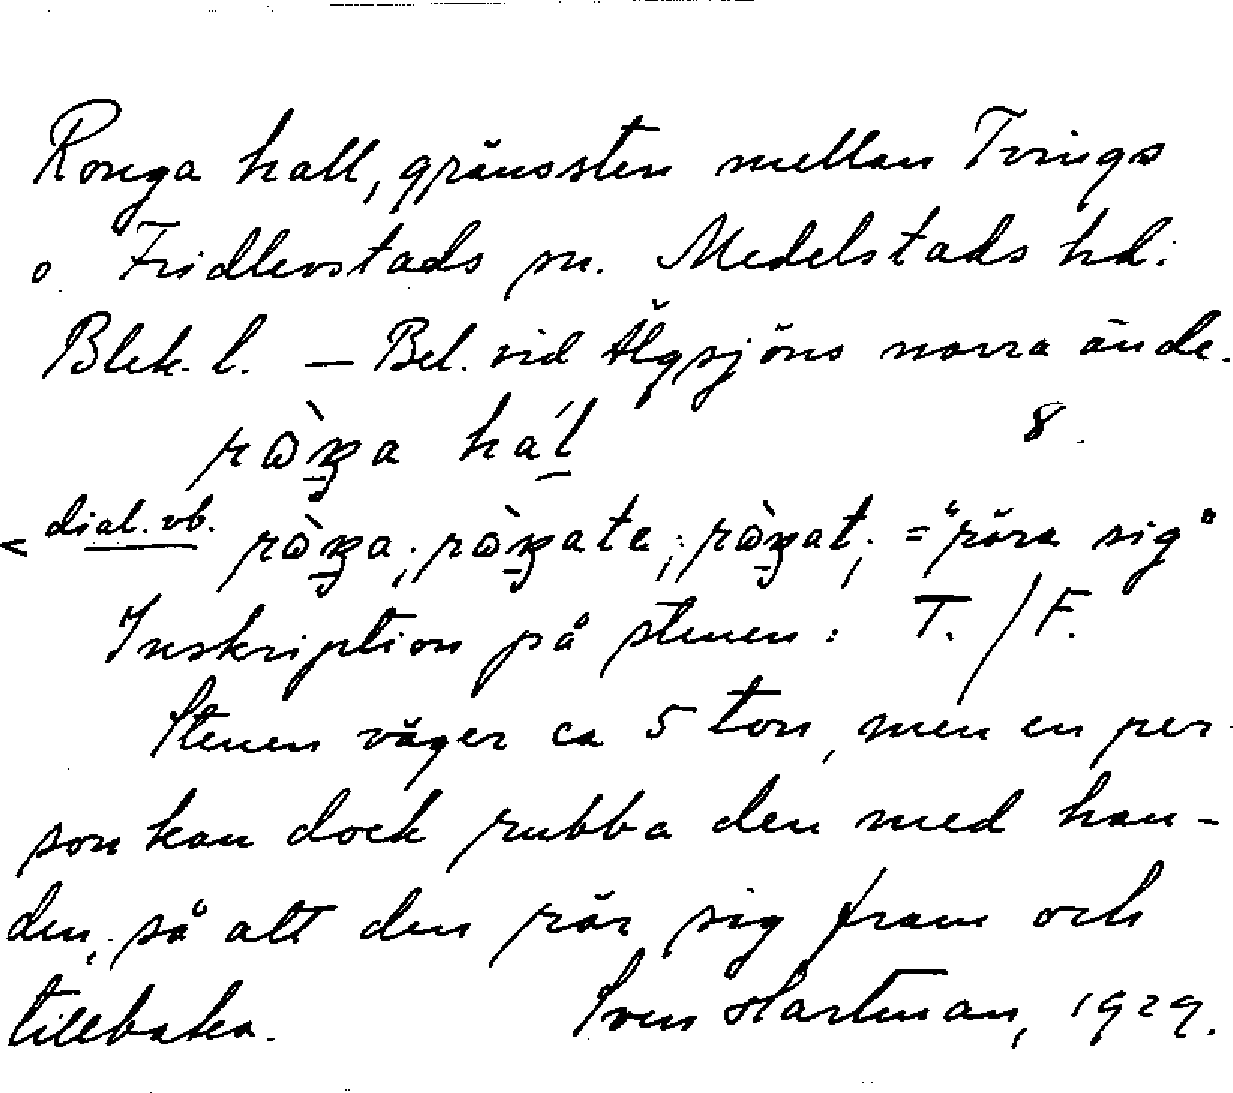 Ronga hall, gränssten mellan Tvings
o Fridlevstads sn. Medelstads hd.
Blek. l. — Bel. vid Älgsjöns norra ände.
rὼŋa hál 8.
< dial. vb. rὼŋa, rὼŋate, rὼŋat, = "röra sig"
Inskription på stenen: T. / F.
Stenen väger ca 5 ton, men en per
son kan dock rubba den med han-
den, så att den rör sig fram och
tillbaka. Sven Hartman, 1929.